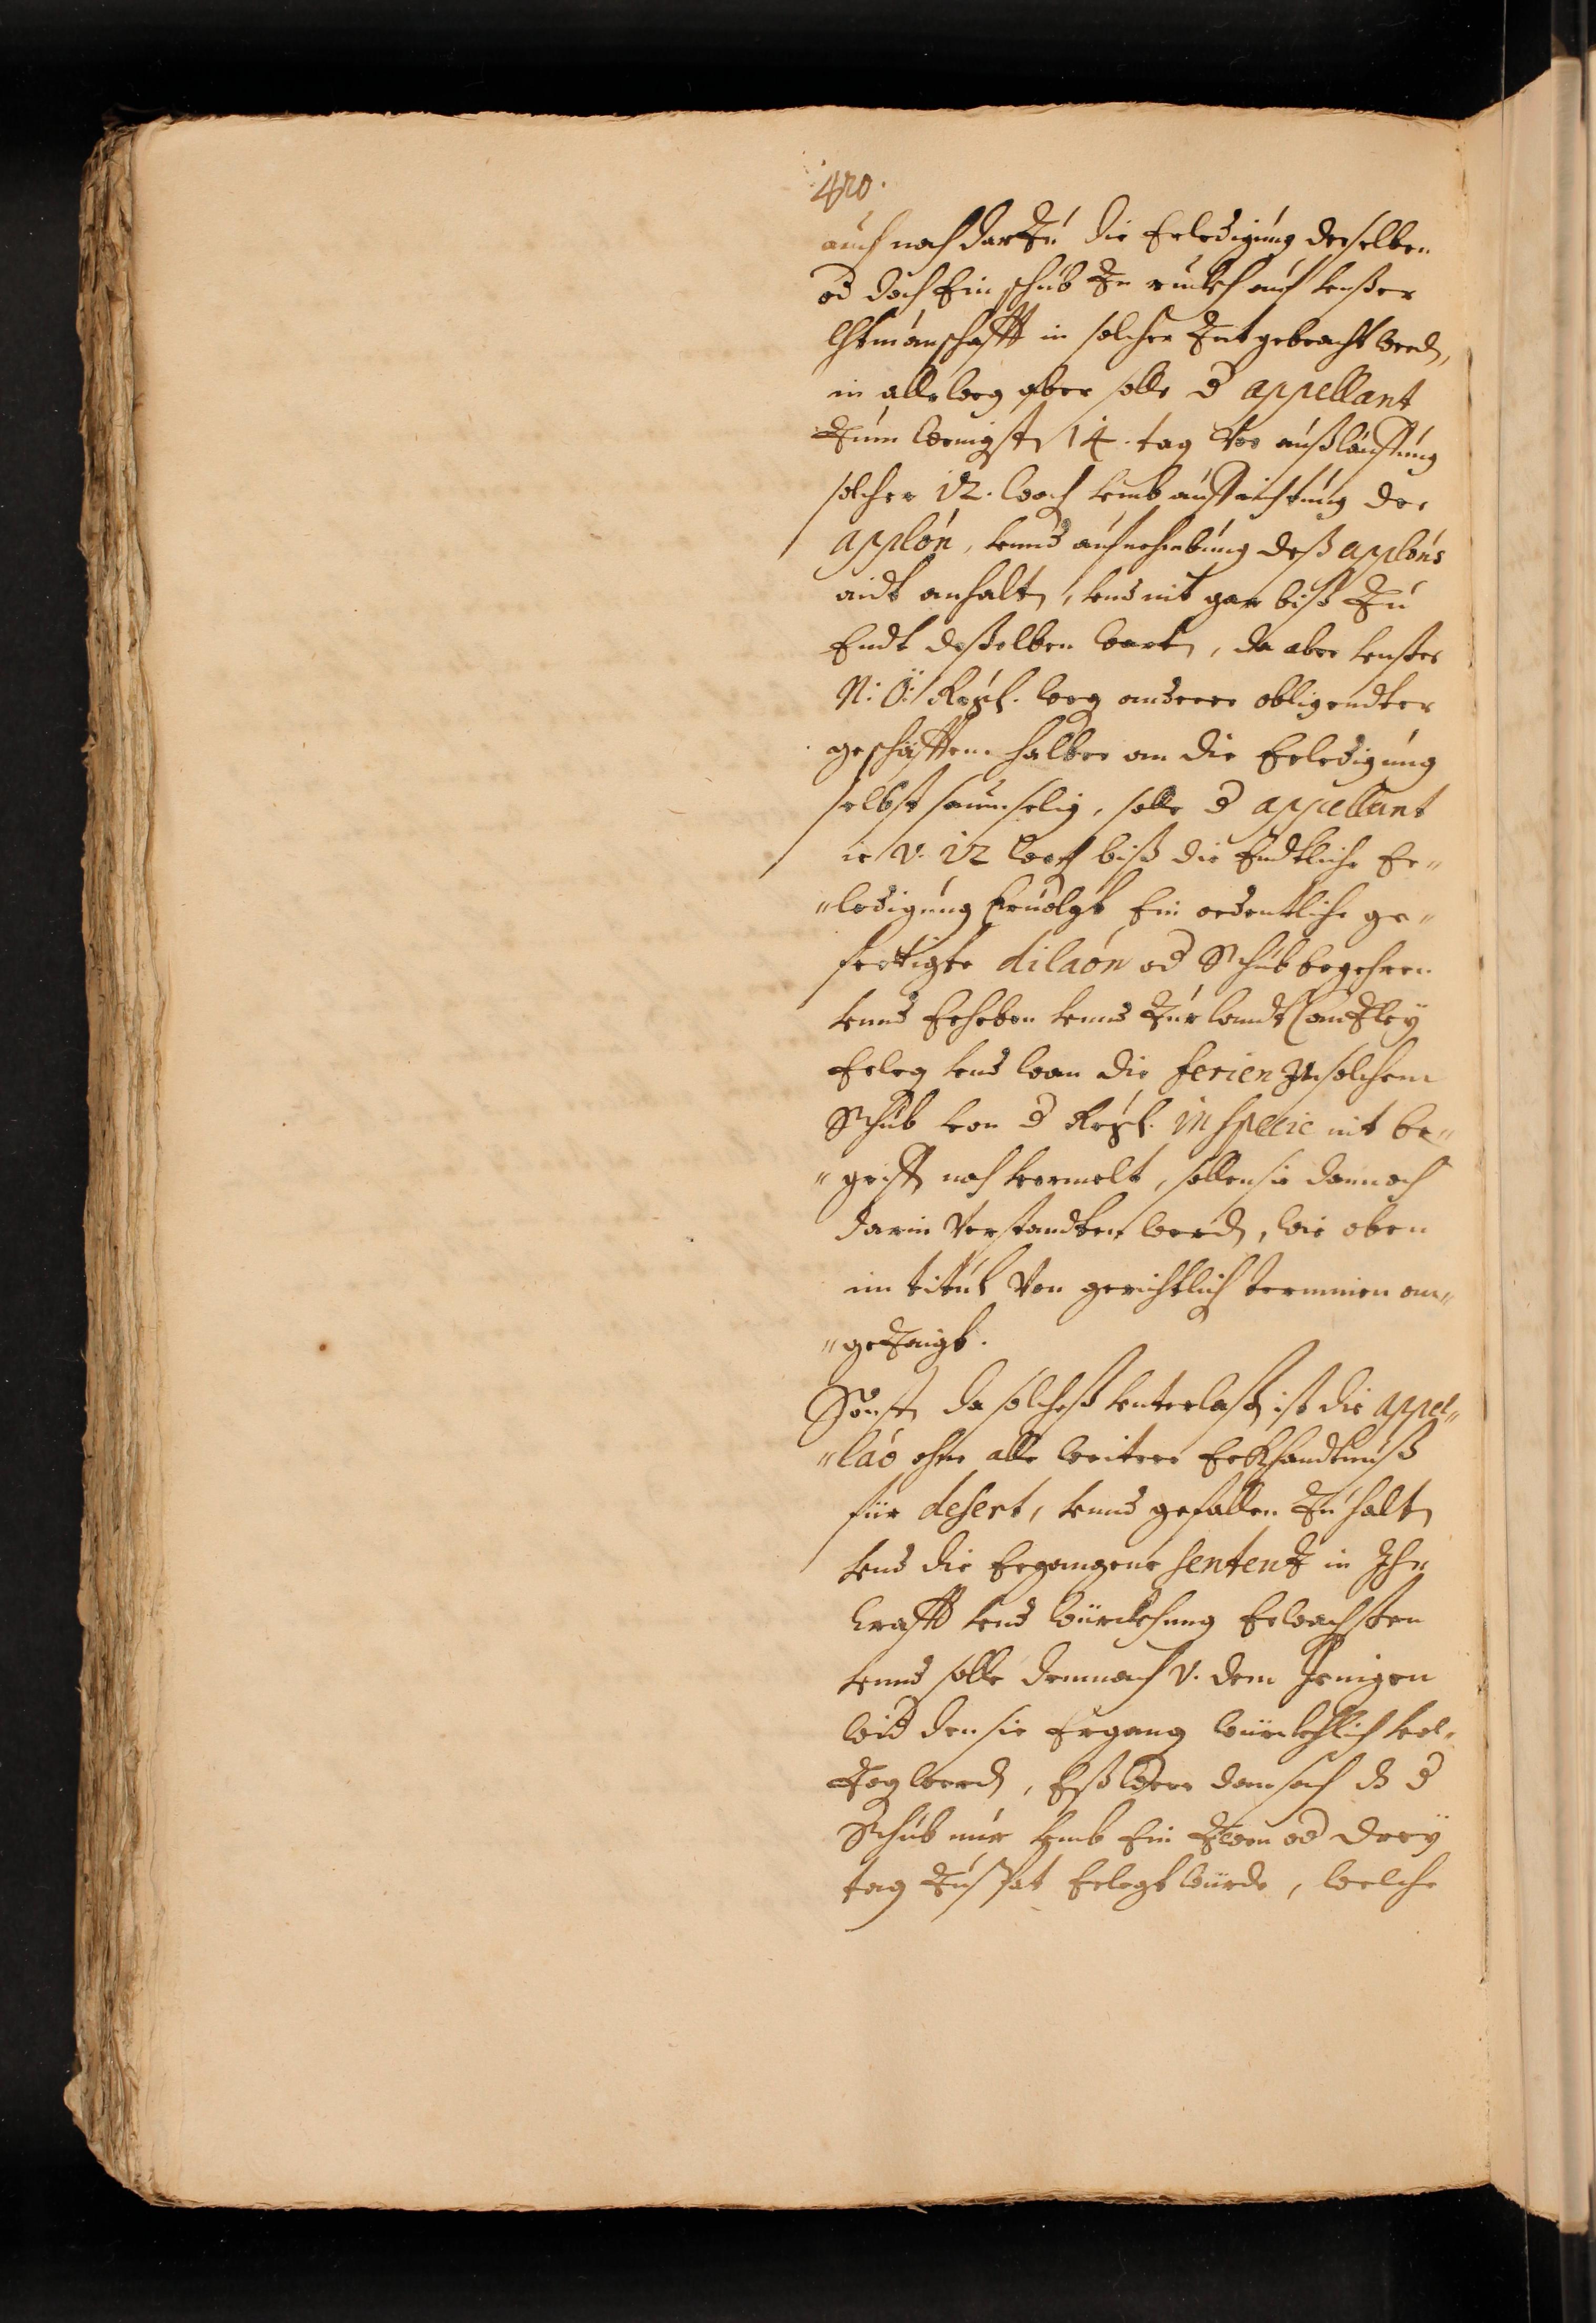 420.
auch noch darzu die Erledigung derselben
od doch Ein schub zu ruckh auf vnser
Lhtmanschafft in solcher Zeit gebracht werd,
in alle weg aber solle d appellant
Zum wenigsten 14. tag vor außlauffung
solcher 12. woch vmb auffrichtung der
applon, vnnd aufnehmbung deß aplons
aidt anhalten, vnd nit gar biß zu
Endt desselben warten, da aber vnser
N: Ö: Regl. weg anderer obligendter
geschäfften halber an die Erledigung
selbst saumselig, solle d appellant
ie v. 12 woch biß die Endtliche Er„
„ledigung Eruolgt Ein ordentliche ge„
fertigte dilaon od Schub begehren
vnnd Erheben vnnd zur landt Canzley
Erleg vnd wan die ferien In solchem
Schub von d Regl. in specie nit be„
„griffen noch vermelt, sollen sie dannoch
darin verstandten werden, wie oben
im titul von gerichtlich terminen an„
„gezaigt.
Sonsten da solches vnterlassen ist die appel„
„lao ohne alle weitere Erkhandtnuß
für desert, vnnd gefallen zu halten
vnd die Ergangene sentenz in Ihr
krafft vnd würckhung Erwachsen
vnnd solle demnach v. dem Jenigen
wid den sie Ergang würckhlich vol„
zog werden, Eß were dan sach dz d
Schub nur vmb Ein zwen od drey
tag zu spat Erlegt würde, welche